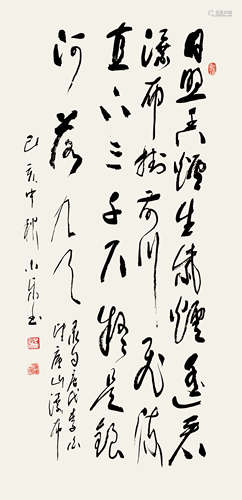 日照香爐生紫煙遙看
瀑布掛前川飛流
直下三千尺疑是銀
河落九天
录自唐代李白
庐山瀑布
己亥中秋书